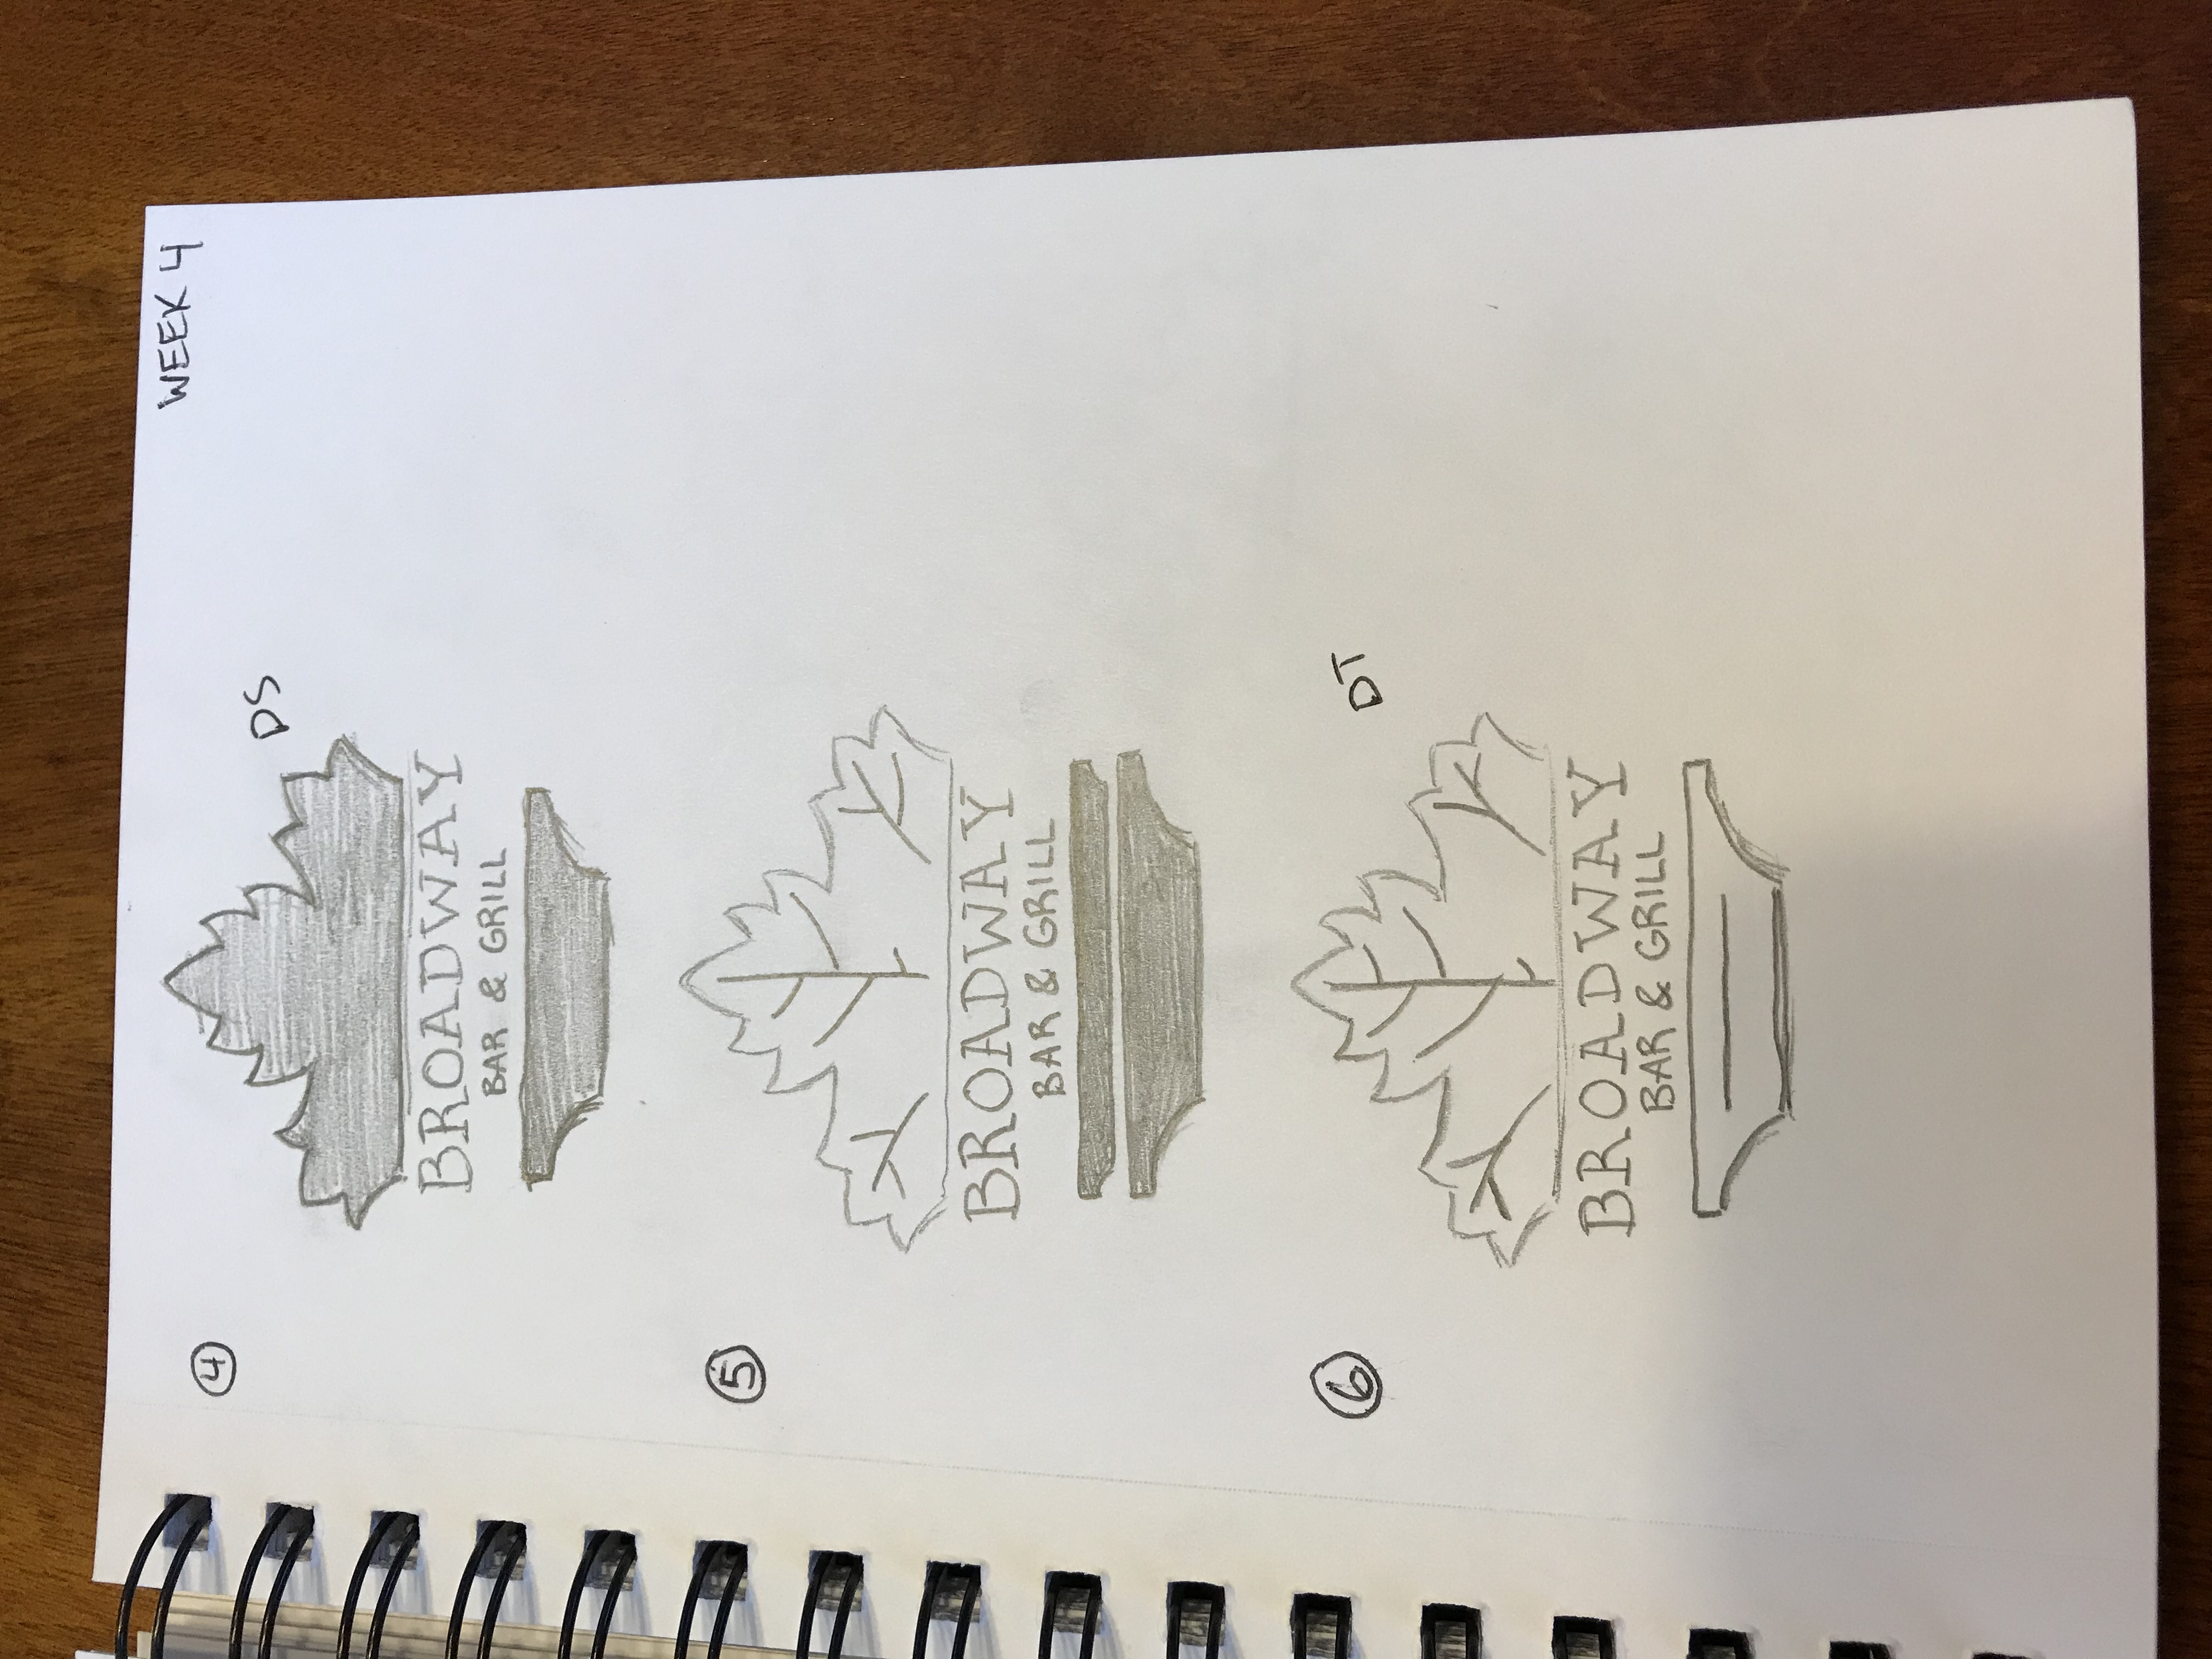 WEEK 4
4
DS
BROADWAY
BAR & GRILL
5
BROADWAY
BAR & GRILL
6
DT
BROADWAY
BAR & GRILL